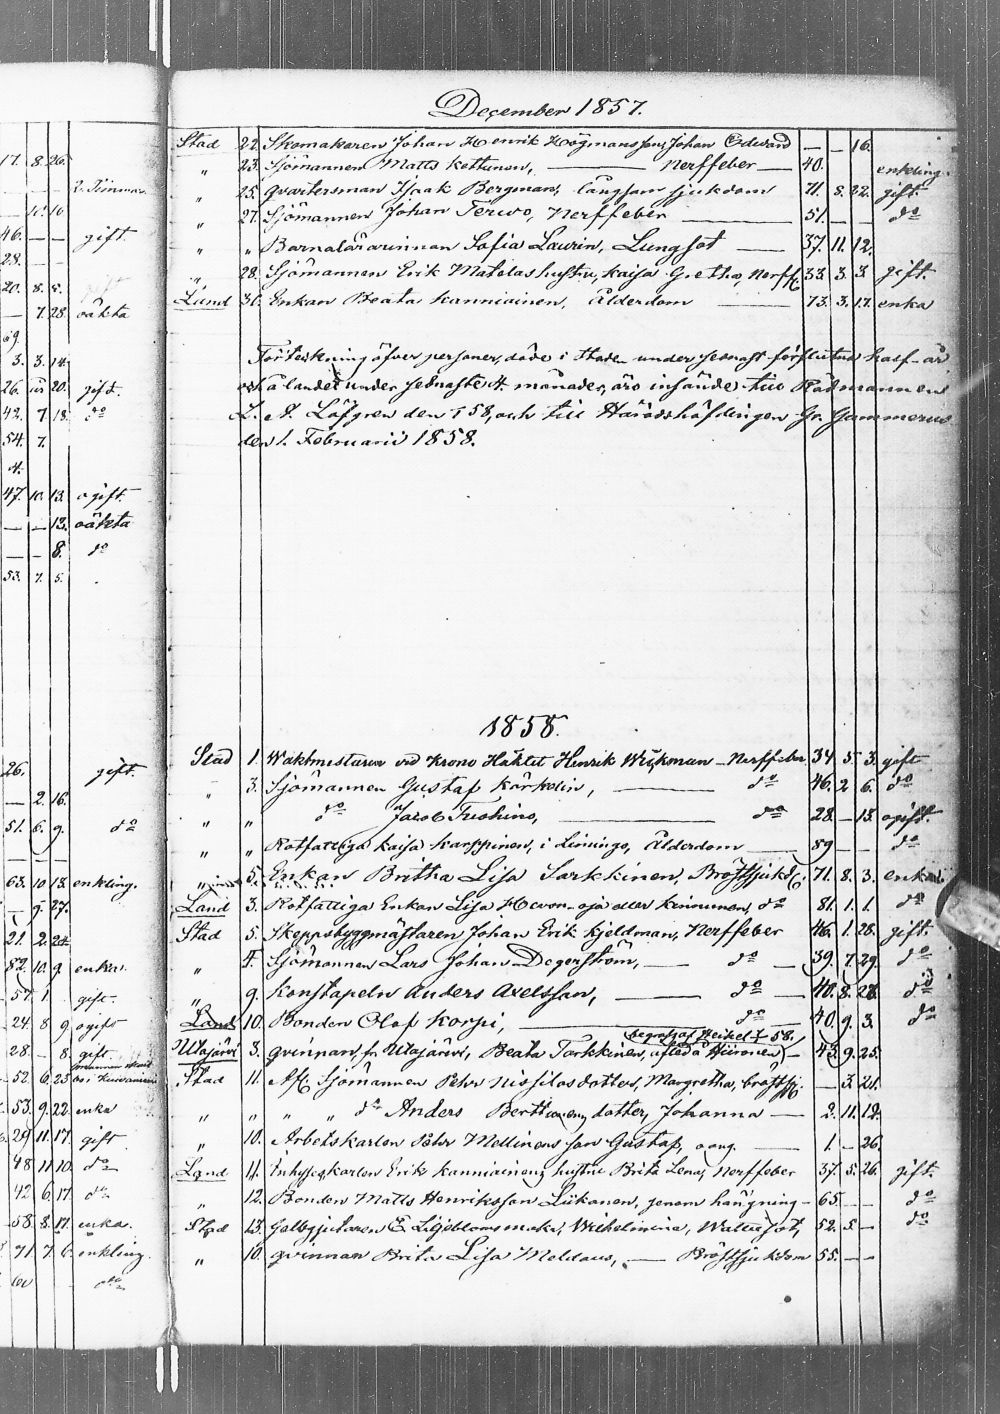 17. 8. 26.
2. Timmar
— 10. 10
46. — — gift.
28. — —
20. 8. 5.
— 7. 28. oäkta
69.
3. 3. 14.
26. 20. gift.
42. 7 18. do
54. 7.
4.
47. 10. 13. ogift.
— — 13. oäkta
— — 8. do
53. 7. 5.
26. gift.
— 2. 16.
51. 6. 9. do
— — —
63. 10. 13. enkling.
— 9. 27.
21. 2. 24.
82. 10. 9. enka.
57. 1 gift.
24. 8 9 ogift
28. — 8. gift.
52. 6. 23
53. 9. 22. enka
29 11. 17. gift.
48 11 10. do
42. 6. 17. do
58. 8. 17. enka.
71. 7. 6. enkling.
do
December 1857.
Stad 22. Skomakaren Johan Henrik Högmans son, Johan Edvard — — 16.
„ 23. Sjömannen Matts Kettunen, — Nerffeber — 40. enkling.
„ 25. Qvartersman Isaak Bergman, långsam sjukdom 71. 8. 22. gift.
„ 27. Sjömannen Johan Terwo, Nerffeber — 51. — — do
„ „ Barnalärarinnan Sofia Laurin, Lungsot — 37. 11. 12.
„ 28. Sjömannen Erik Matelas hustru, Kaisa Gretha, Nerff. 33. 3. 3. gift.
Land 30. Enkan Beata Kanniainen, Ålderdom — 73. 3. 17. enka
Förteckning öfver personer, döde i Staden under sednast förflutna half-år
och å landet under sednaste 4 månader, äro insände till Rådmannen
L. A. Löfgren den 1/1 58, och till Häradshöfdingen Gr. Gammerus
den 1. Februarii 1858.
1858.
Stad 1. Waktmestaren vid Krono Häktet Henrik Wickman — Nerffeber 34 5 3. gift
„ 3. Sjömannen Gustaf Kärkelin, — do 46. 2 6. do
„ „ do Jacob Fushino, — do 28. — 13. ogift.
„ „ Rotfattiga Kaisa Karppinen, i Limingo, Ålderdom — 89 — — do
„ 5. Enkan Britha Lisa Sarkkinen, Bröstsjukd. 71. 8. 3. enka.
Land 3. Rotfattiga Enkan Lisa Hevon-oja eller Kinnunen, do 81. 1. 1. do
Stad 5. Skeppsbyggmästaren Johan Erik Kjeldman, Nerffeber 46. 1. 28. gift.
„ 4. Sjömannen Lars Johan Degerström, — do — 39. 7. 29. do
„ 9. Konstapeln Anders Axelsson, — do — 40. 8. 28. do
Land 10. Bonden Olof Korpi, — do 40. 9. 3. do
Utajärvi 3. qvinnan, fr. Utajärvi, Beata Torkkinen, — 43. 9. 25.
Stad 11. Afl. Sjömannen Pehr Nissilas dotter, Margretha, bröstsj. — 3. 21.
„ „ „ „ do Anders Berttunens dotter, Johanna — 2. 11. 12.
„ 10. Arbetskarlen Pehr Mellinens son Gustaf, — 1. — 26.
Land 11. Inhyseskarlen Erik Kanniainens hustru Brita Lena, Nerffeber 37. 5. 26. gift.
„ 12. Bonden Matts Henriksson Liikanen, genom hängning — 65. — — do
Stad 13. Gelbgjutaren E. Liljebloms maka, Wilhelmina, Wattusot, 52. 5 — do
„ 10. qvinnan Brita Lisa Meldaus, — Bröstsjukdom 55. — —